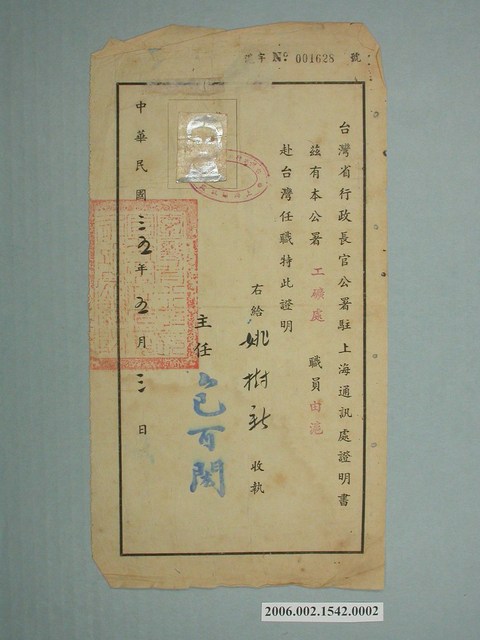 字 №001628 號
台灣省行政長官公署駐上海通訊處證明書
茲有本公署 工礦處 職員由滬
赴台灣任職特此證明
右給 姚樹新 收執
主任 包可閎
中華民國三五年五月三日
2006.002.1542.0002